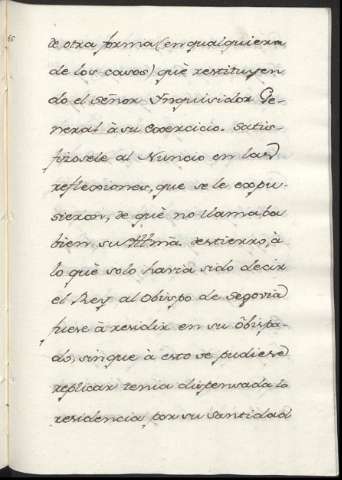 de otra forma (en qualquiera
de los casos) què restituyen
do el señor Ynquisidor Ge-
neral à su Exercicio. Satis-
fizosele al Nuncio en las
reflecciones, que se le expu-
sieron, de què no llamaba
bien su Illma. destierro, à
lo què solo havia sido decir
el Rey al Obispo de Segovia
fuese à residir en su Obispa-
do, sin que à esto se pudiese
replicar tenia dispensada la
residencia por su Santidad